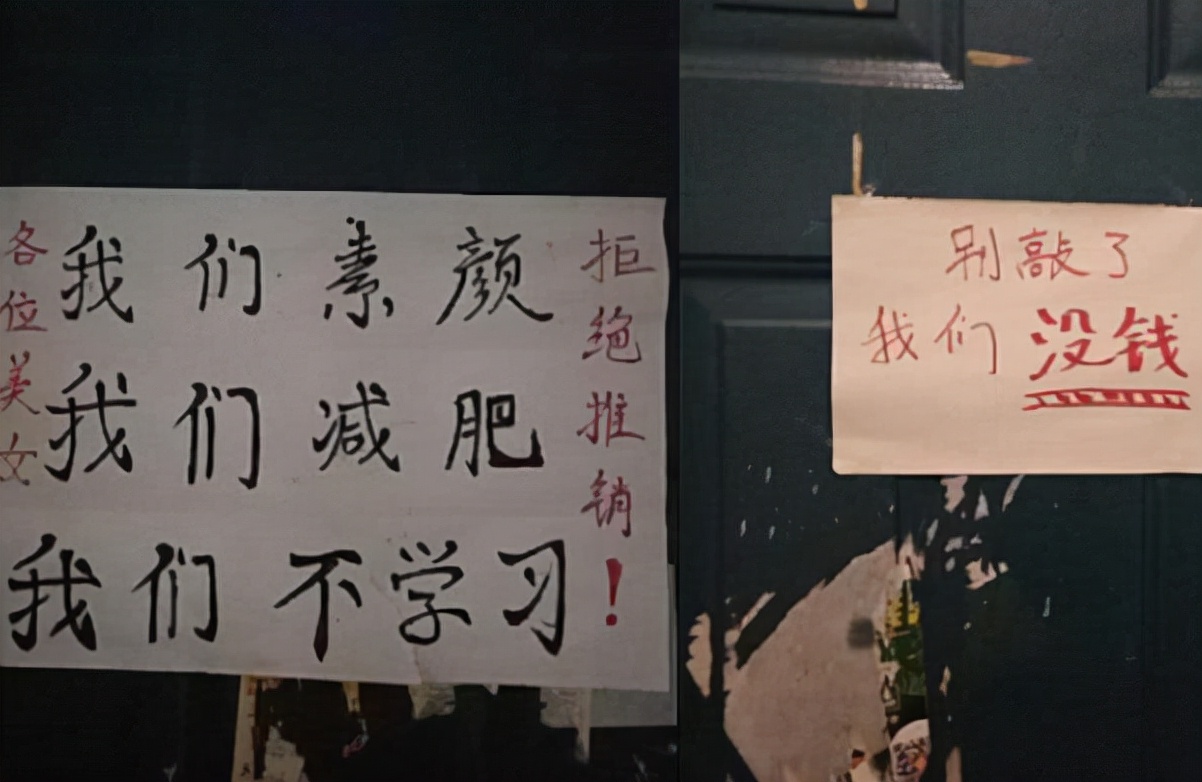 各位美女
我们素颜
我们减肥
我们不学习
拒绝推销!
别敲了
我们没钱